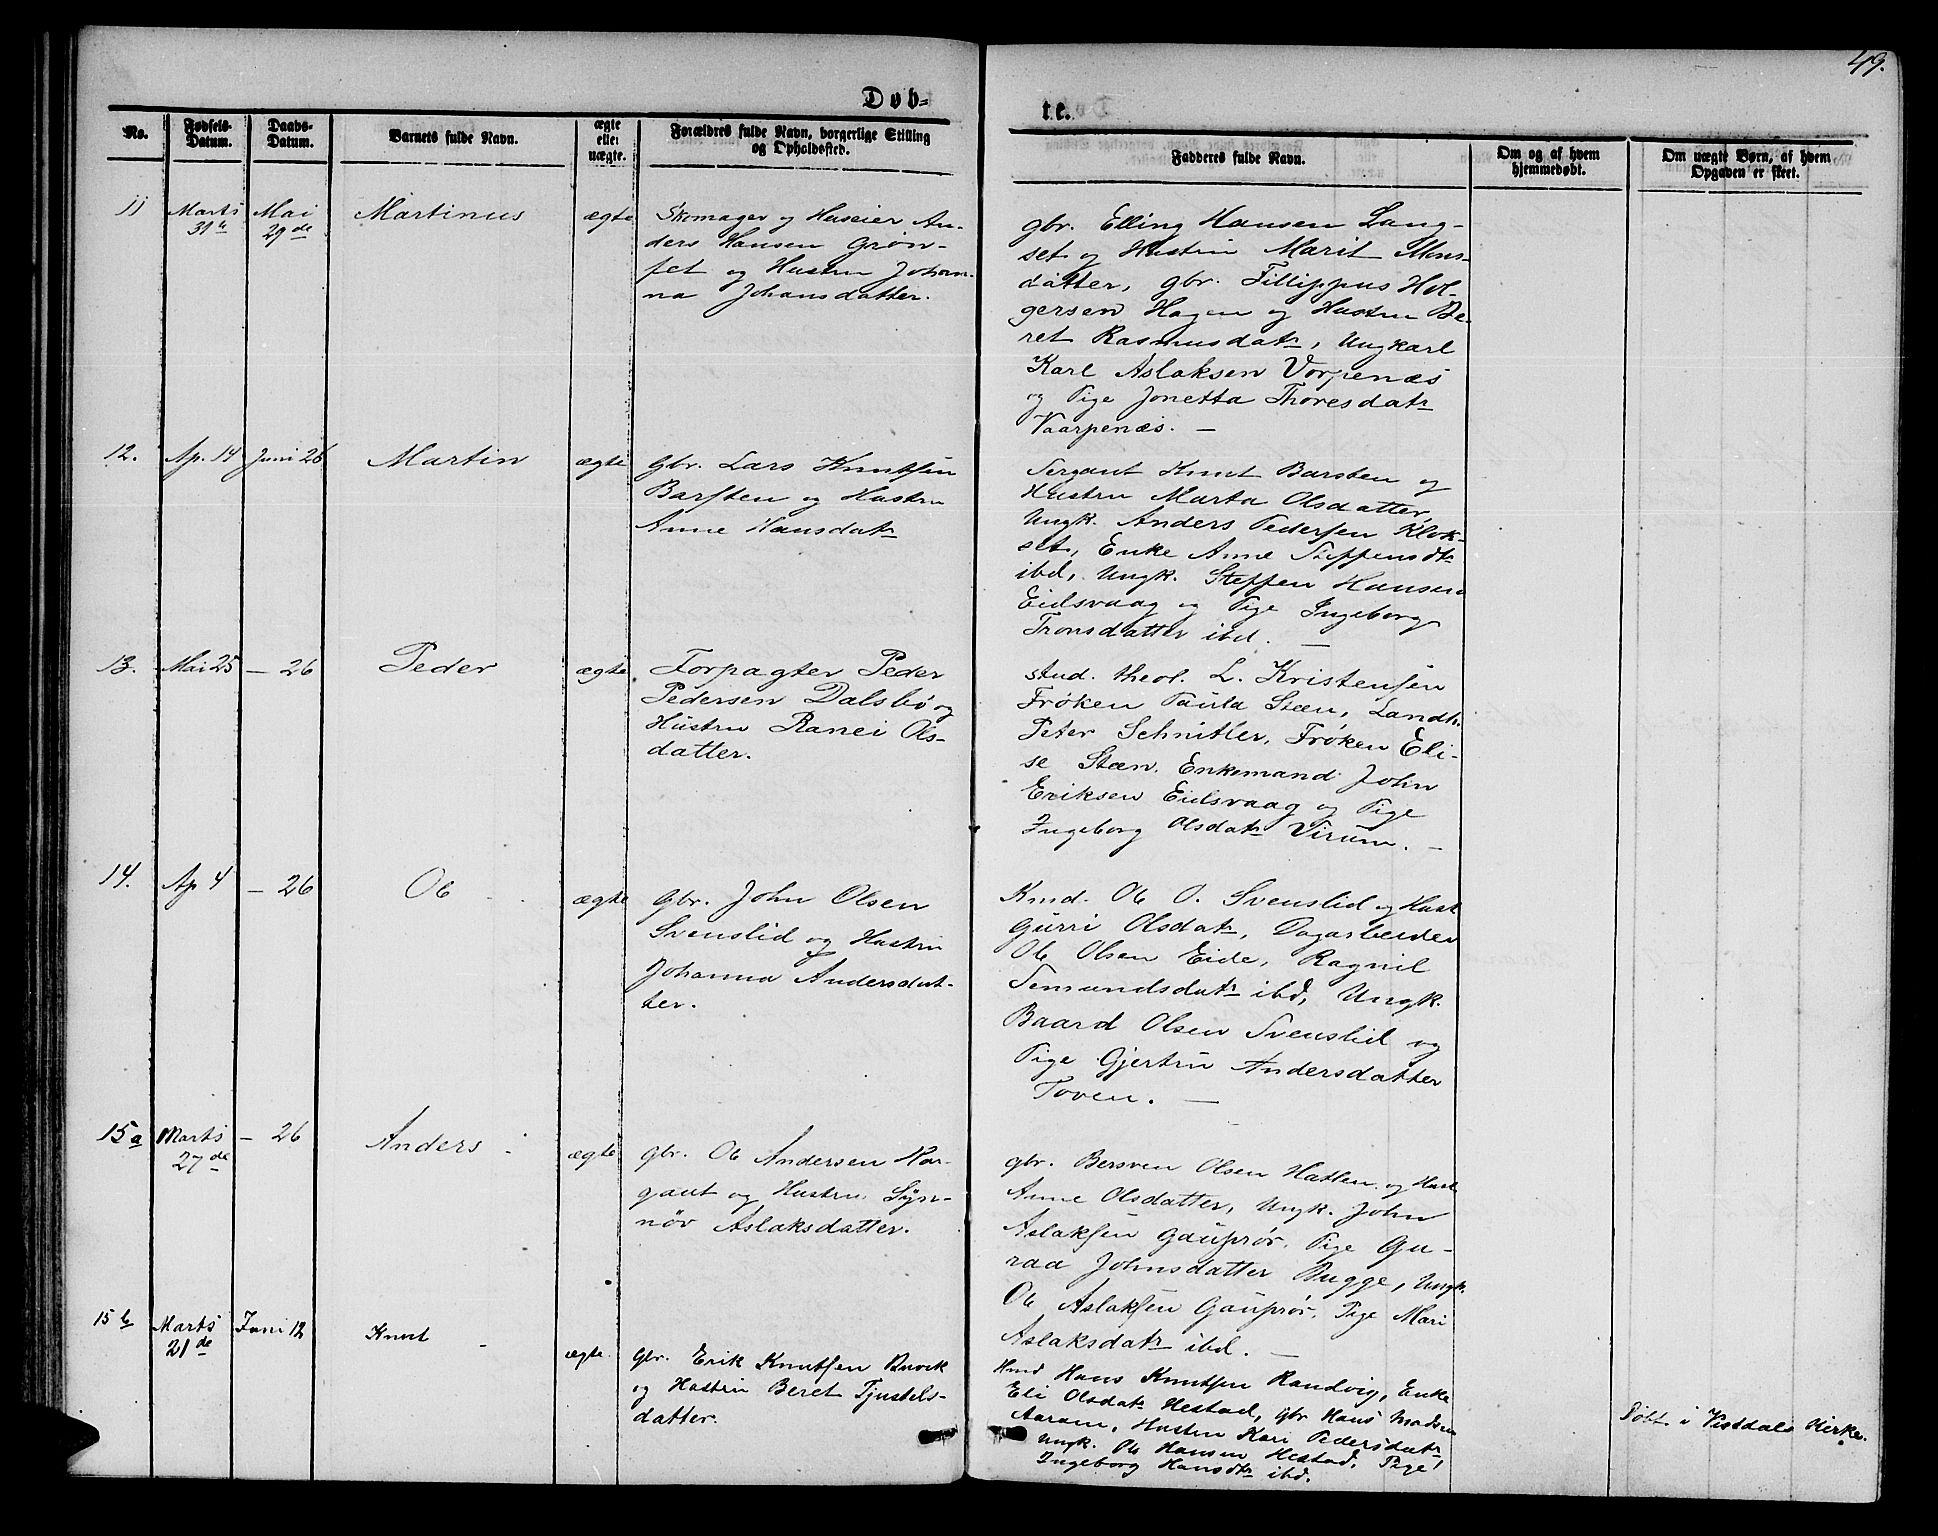 49.
Døb=
te.
No.
Fødsels-
Datum.
Daabs-
Datum.
Barnets fulde Navn.
ægte
eller
uægte.
Forældres fulde Navn, borgerlige Stilling
og Opholdssted.
Fadderes fulde Navn.
Om og af hvem
hjemmedøbt.
Om uægte Børn, af hvem
Opgaven er skeet.
11
Marts
31te
Mai
29de
Martinus
ægte
Skomager og Huseier An-
ders Hansen Grøn-
set og Hustru Johan-
na Johansdatter.
gbr. Elling Hansen Lang-
set og Hustru Marit Mons-
datter, gbr. Fillippus Hol-
gersen Hagen og Hustru Be-
ret Rasmusdatr, Ungkarl
Karl Aslaksen Vorpenæs
og Pige Jonetta Thoresdatr
Vaarpenæs. —
12.
Ap. 14
Juni 26
Martin
ægte
Gbr. Lars Knutsen
Barsten og Hustru
Anne Hansdatr
Sergant Knut Barsten og
Hustru Marta Olsdatter,
Ungk. Anders Pedersen Klok-
set, Enke Anne Steffensdtr
ibd, Ungk. Steffen Hansen
Eidsvaag og Pige Ingeborg
Tronsdatter ibd. —
13.
Mai 25
— 26
Peder
ægte
Forpagter Peder
Pedersen Dalsbø og
Hustru Ranei Ols-
datter.
stud. theol. L. Kristensen
Frøken Paula Stæn, Landh.
Peter Schnitler, Frøken Eli-
se Stæn, Enkemand John
Eriksen Eidsvaag og Pige
Ingeborg Olsdatr Virum. —
14.
Ap 4
— 26
Ole
ægte
gbr. John Olsen
Svenslid og Hustru
Johanna Andersdat-
ter.
Kmd. Ole O. Svenslid og Hust
Gurri Olsdatr, Dagarbeider
Ole Olsen Eide, Ragnil
Semundsdatr ibd, Ungk.
Baard Olsen Svenslid og
Pige Gjertru Andersdatter
Toven. —
15a
Marts
27de
— 26
Anders
ægte
gbr. Ole Andersen Har-
gaut og Hustru Syn-
nøv Aslaksdatter.
gbr. Bersven Olsen Hatlen og Hust
Anne Olsdatter, Ungk. John
Aslaksen Gauprør, Pige Gu-
raa Johnsdatter Bugge, Ungk.
Ole Aslaksen Gauprør, Pige Mari
Aslaksdatr ibd. —
15b
Marts
21de
Juni 12
Knut
ægte.
Gbr. Erik Knutsen Buvik
og Hustru Beret Tjustels-
datter.
Hmd Hans Knutsen Randvig, Enke
Eli Olsdatr Hestad, gbr Hans Madsen
Aaram, Hustru Kari Pedersdatr
Ungk. Ole Hansen Hestad, Pige
Ingeborg Hansdtr ibd.
Døbt i Vistdals Kirke.